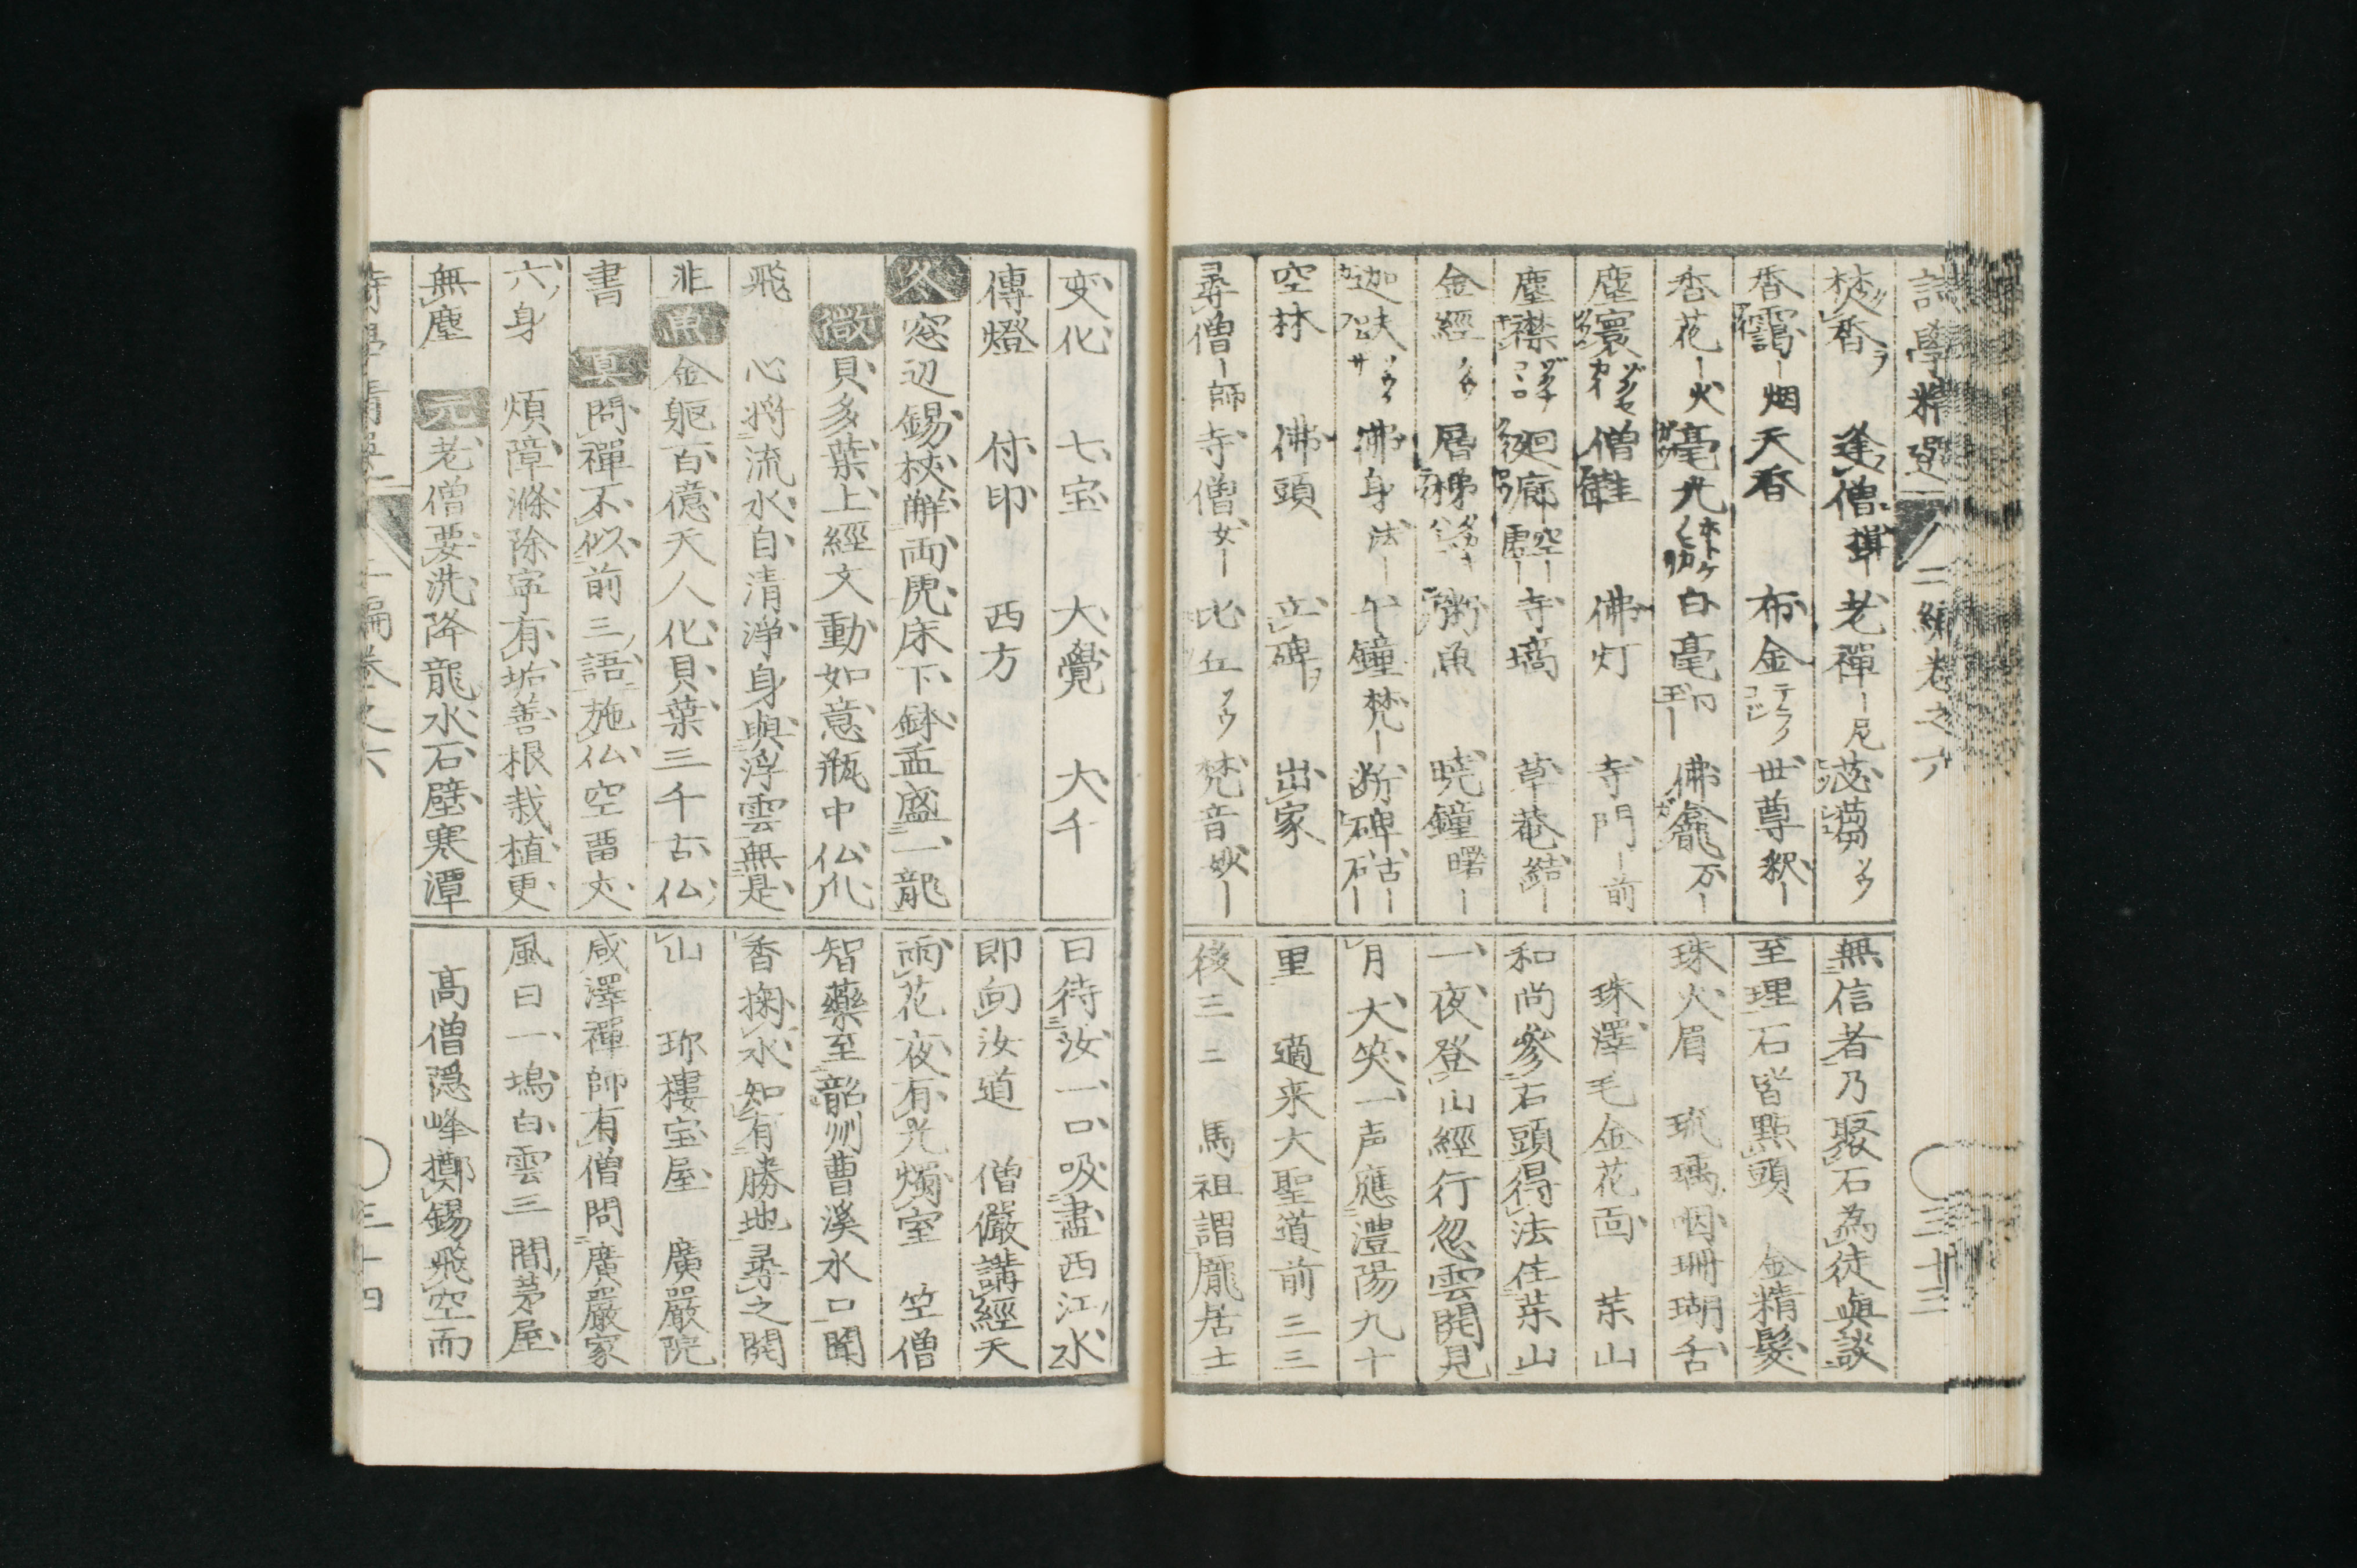 詩學精選 二編卷之六 三十三
焚香ヲ 逢僧 老禪ー尼 苾蒭ソウ
香靄ー烟 天香 布金テラノコト 世尊釈ー
香花ー火 毫光 白毫 佛龕
塵寰 僧鞋 佛灯 寺門ー前
塵襟 廻廊 寺墻 草菴結ー
金經 層梯 粥魚 曉鐘曙ー
迦夫 佛身法ー 午鐘梵ー 断碑古ー石ー
空林 佛頭 立碑ヲ 出家
尋僧ー師 寺僧女ー 比丘ソウ 梵音妙ー
無信者乃聚石為徒與談
至理石皆點頭 金精髮
珠火眉 琉璃咽珊瑚舌
珠澤毛金花面 茱山
和尚參石頭得法住茱山
一夜登山經行忽雲開見
月大笑一声應澧陽九十
里 適来大聖道前三三
後三二 馬祖謂龐居士
変化 七宝 大覺 大千
傳燈 付印 西方
冬 窓辺錫杖解両虎床下鉢盂盛一龍
微 貝多葉上經文動如意瓶中仏爪
飛 心将流水自清淨身與浮雲無是
非 魚 金躯百億天人化貝葉三千古仏
書 真 問禪不似前三語施仏空畱丈
六身 煩障滌除寧有垢善根栽植更
無塵 元 老僧要洗降龍水石壁寒潭
曰待汝一口吸盡西江水
即向汝道 僧儼講經天
雨花夜有光燭室 笠僧
智藥至韶州曹溪水口聞
香掬水知有勝地尋之開
山 珎樓宝屋 廣嚴院
咸澤禪師有僧問廣嚴家
風曰一塢白雲三間茅屋
高僧隠峰擲錫飛空而
二編卷之六 三十四